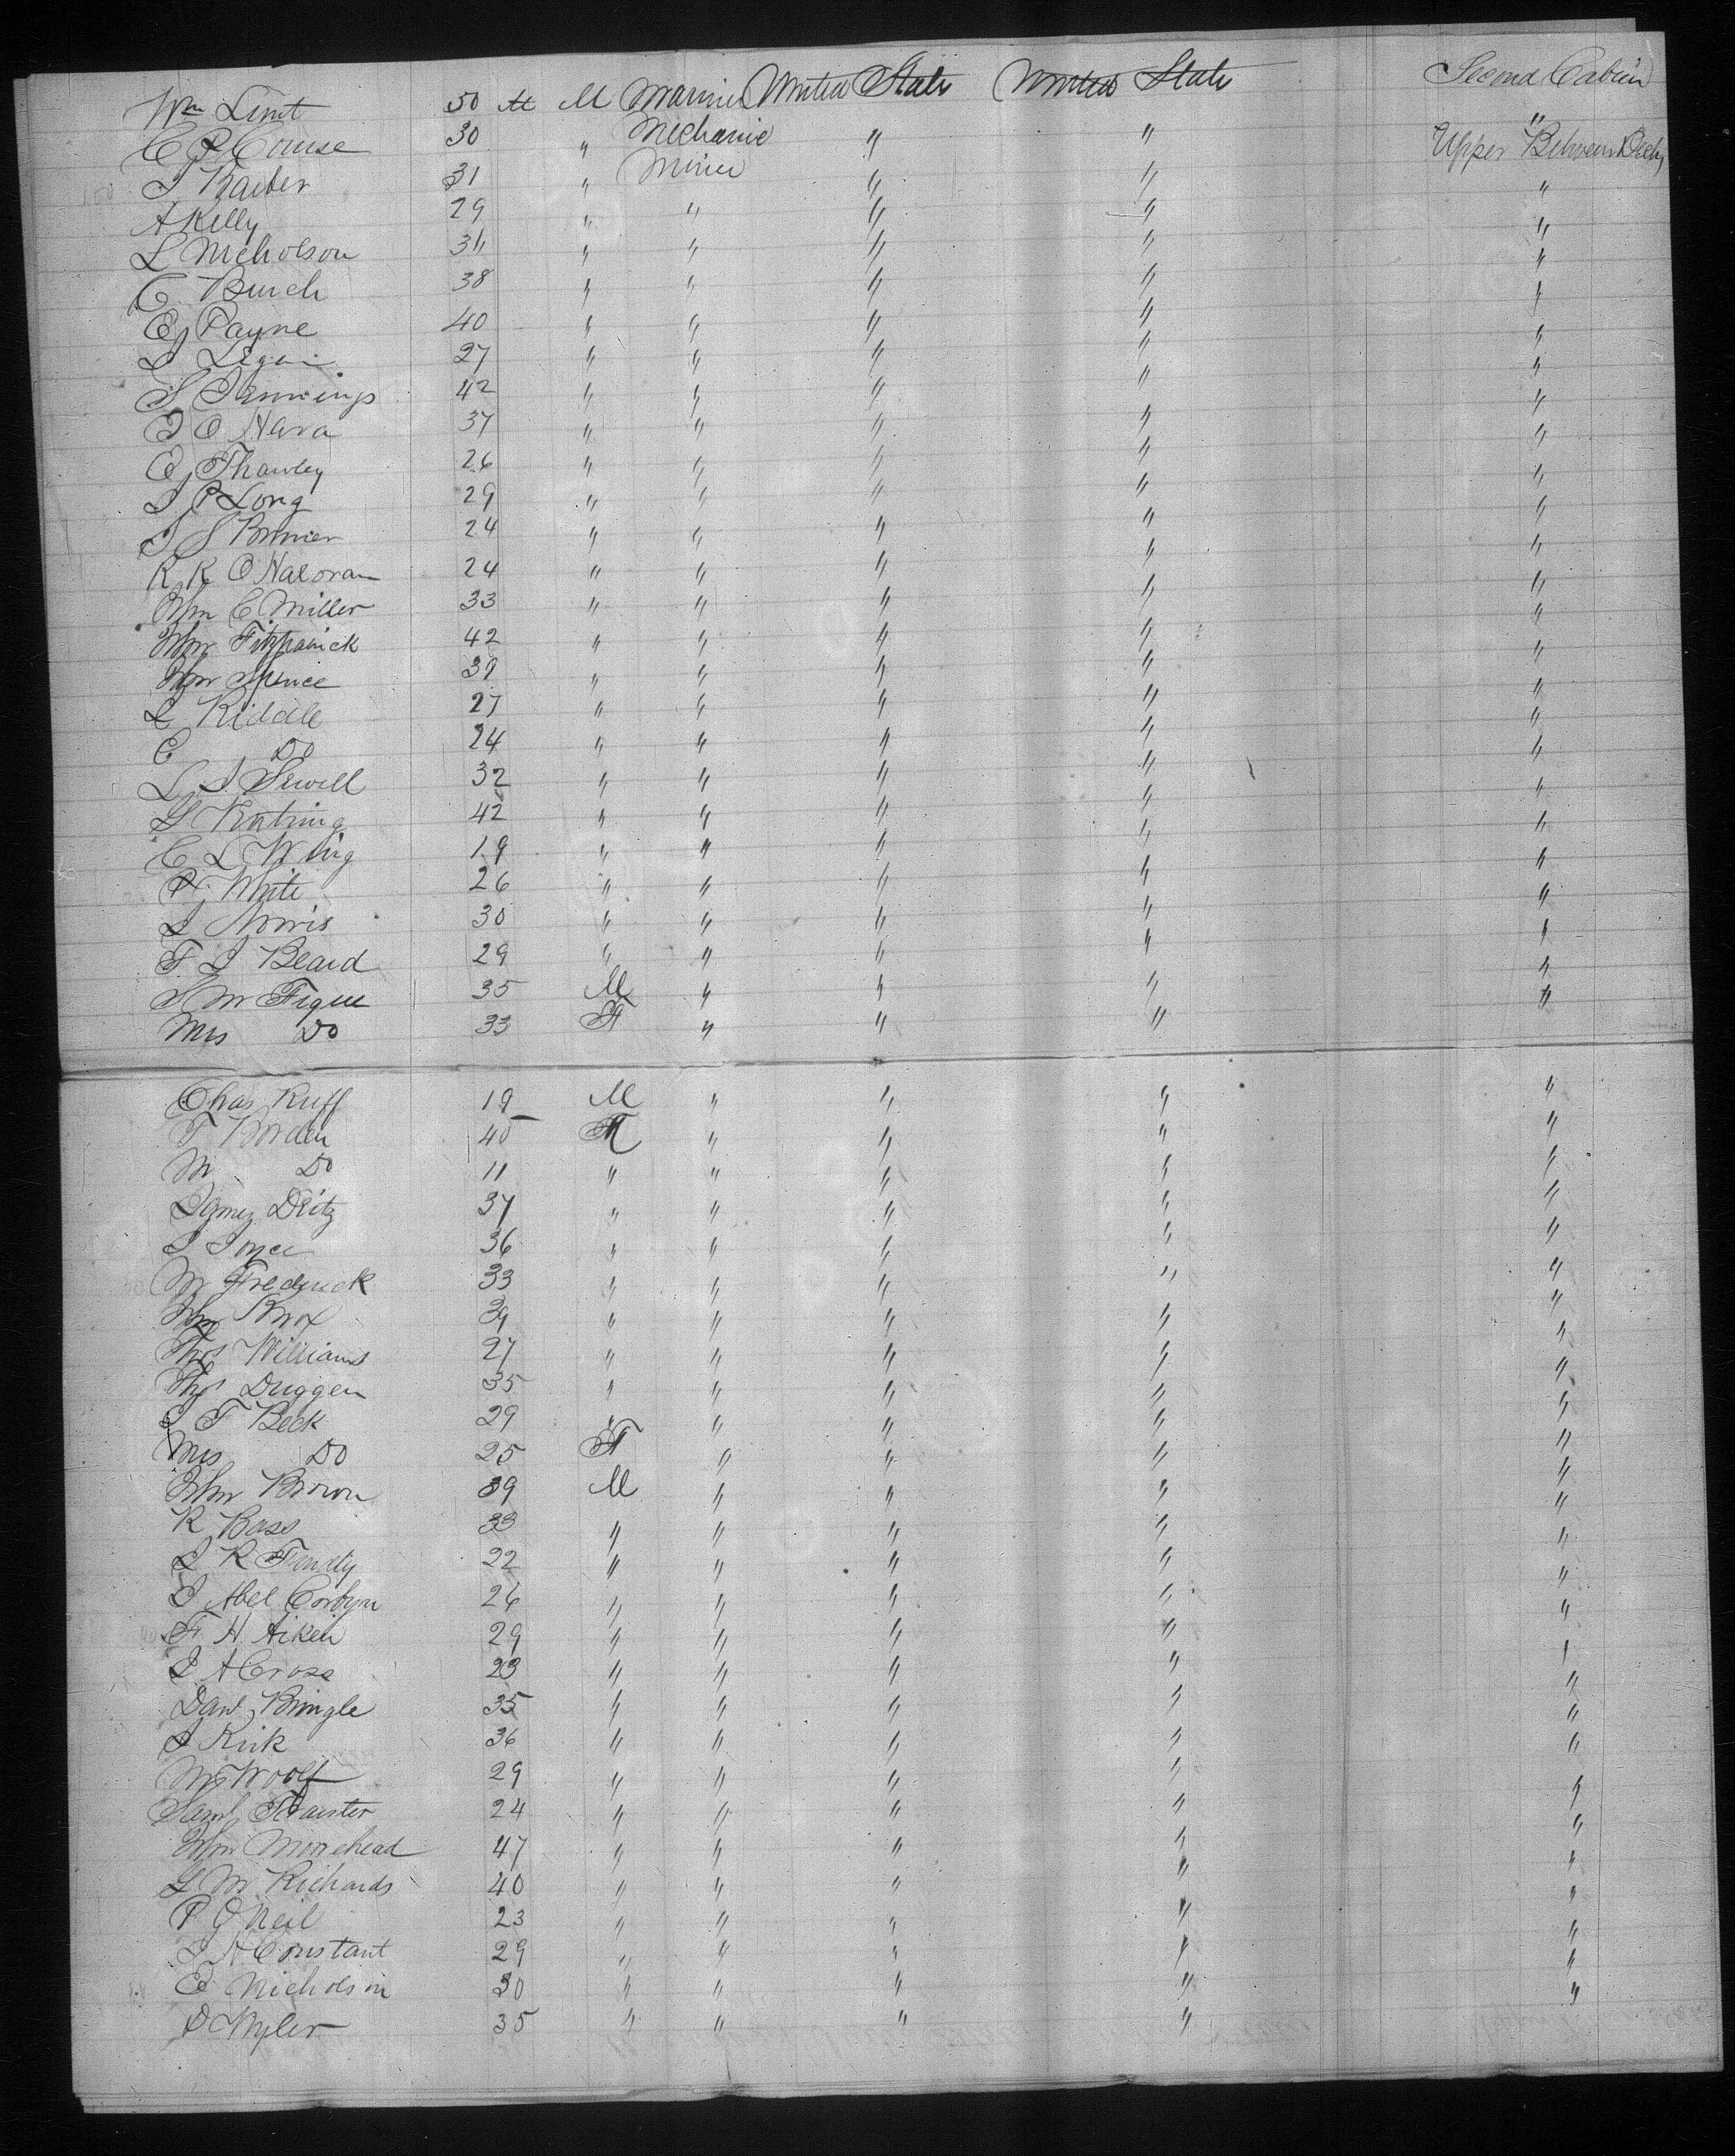 Wm Lint 50 M M Mariner United State United State Second Cabin
C P Couse 30 " Mechanic " " "
J Barber 31 " Miner " " Upper Between Decks
A Kelly 29 " " " " "
L Nicholson 34 " " " " "
C. Burch 38 " " " " "
E Payne 40 " " " " "
27 " " " " "
S Jennings 42 " " " " "
J O Hara 37 " " " " "
E Thawley 26 " " " " "
J P Long 29 " " " " "
J S Bonner 24 " " " " "
R K O Haloran 24 " " " " "
Wm C Miller 33 " " " " "
Wm Fitzpatrick 42 " " " " "
Wm Spence 39 " " " " "
L Riddle 27 " " " " "
C Do 24 " " " " "
L J Sewell 32 " " " " "
42 " " " " "
C L Wing 19 " " " " "
P White 26 " " " " "
J Norris 30 " " " " "
F J Beard 29 " " " " "
S M Figue 35 M " " " "
Mrs Do 33 F " " " "
Chas Ruff 19 M " " " "
T Borden 40 M " " " "
M Do 11 " " " " "
James Deitz 37 " " " " "
J Joyce 36 " " " " "
M Frederick 33 " " " " "
Wm Knox 39 " " " " "
Thos Williams 27 " " " " "
Thos Duggen 35 " " " " "
J F Beck 29 " " " " "
Mrs Do 25 F " " " "
Wm Brown 39 M " " " "
R Bass 33 " " " " "
J R Fundly 22 " " " " "
J Abel Corbyn 26 " " " " "
F. H. Aiken 29 " " " " "
J A Cross 23 " " " " "
Danl Bringle 35 " " " " "
J Kirk 36 " " " " "
M Woolf 29 " " " " "
Saml Trauster 24 " " " " "
Wm Moorehead 47 " " " " "
G M Richards 40 " " " " "
P O Neil 23 " " " " "
J A Constant 29 " " " " "
E Nicholson 30 " " " " "
D Wyler 35 " " " "